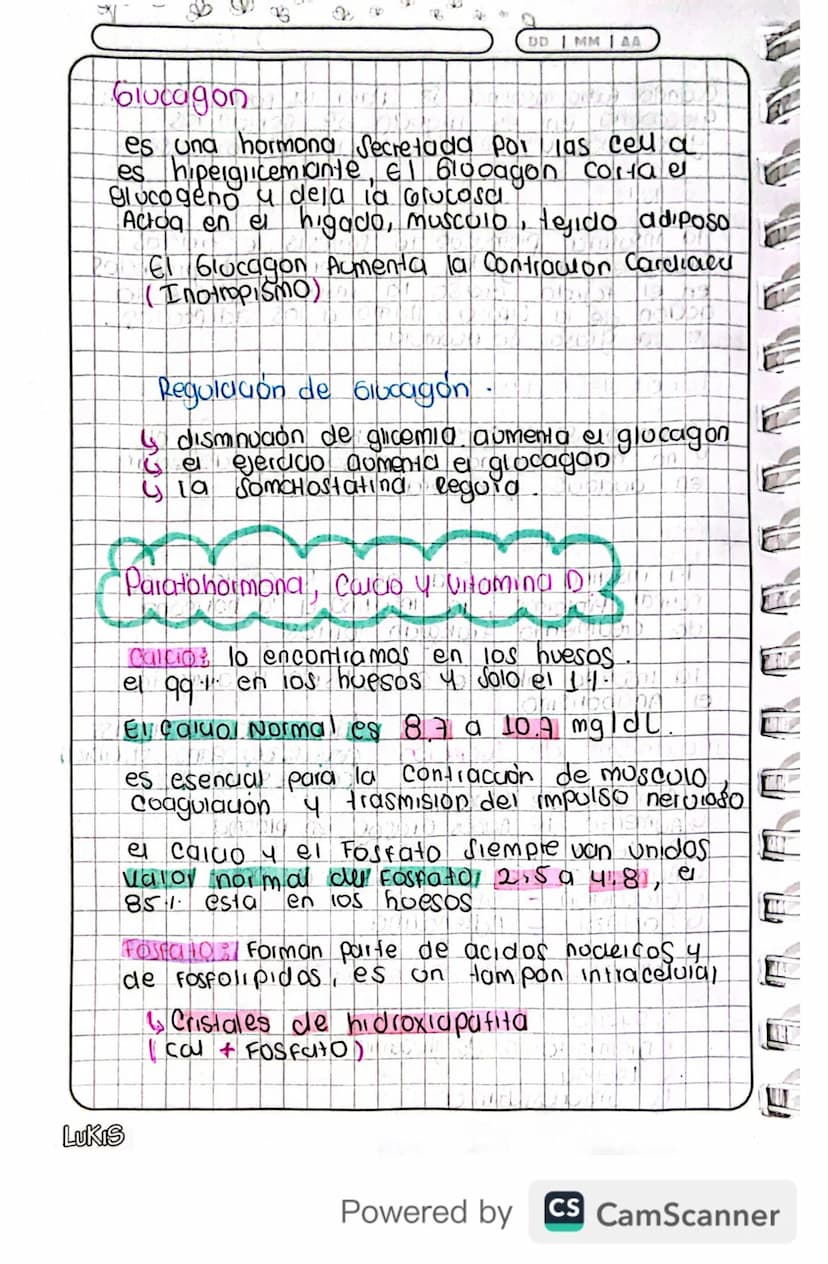 DD | MM | AA
Glucagon
es una hormona secretada por las cell α
es hiperglicemiante, El Glocagon corta el
glucogeno y deja la Glucosa
Actúa en el higado, musculo, tejido adiposo
El Glucagon Aumenta la Contracción Cardiaca
(Inotropismo)
Regulación de Glucagón.
↳ dismnución de glicemia aumenta el glocagon
↳ el ejercicio aumenta el glocagon
↳ la somatostatina regula.
Paratohormona, Calcio y Vitamina D
Calcio: lo encontramos en los huesos.
el 99% en los huesos y solo el 1%.
El Calcio Normal es 8,7 a 10.7 mg/dL.
es esencial para la contracción de musculo,
coagulación y trasmision del impulso nervioso
el calcio y el Fosfato siempre van unidos
valor normal del Fosfato, 2,5 a 4.8, el
85% esta en los huesos
Fosfato: Forman parte de acidos nucleicos y
de fosfolipidos, es un tampon intracelular
↳ Cristales de hidroxiapatita
(cal + FOSFATO)
LUKIS
Powered by CS CamScanner